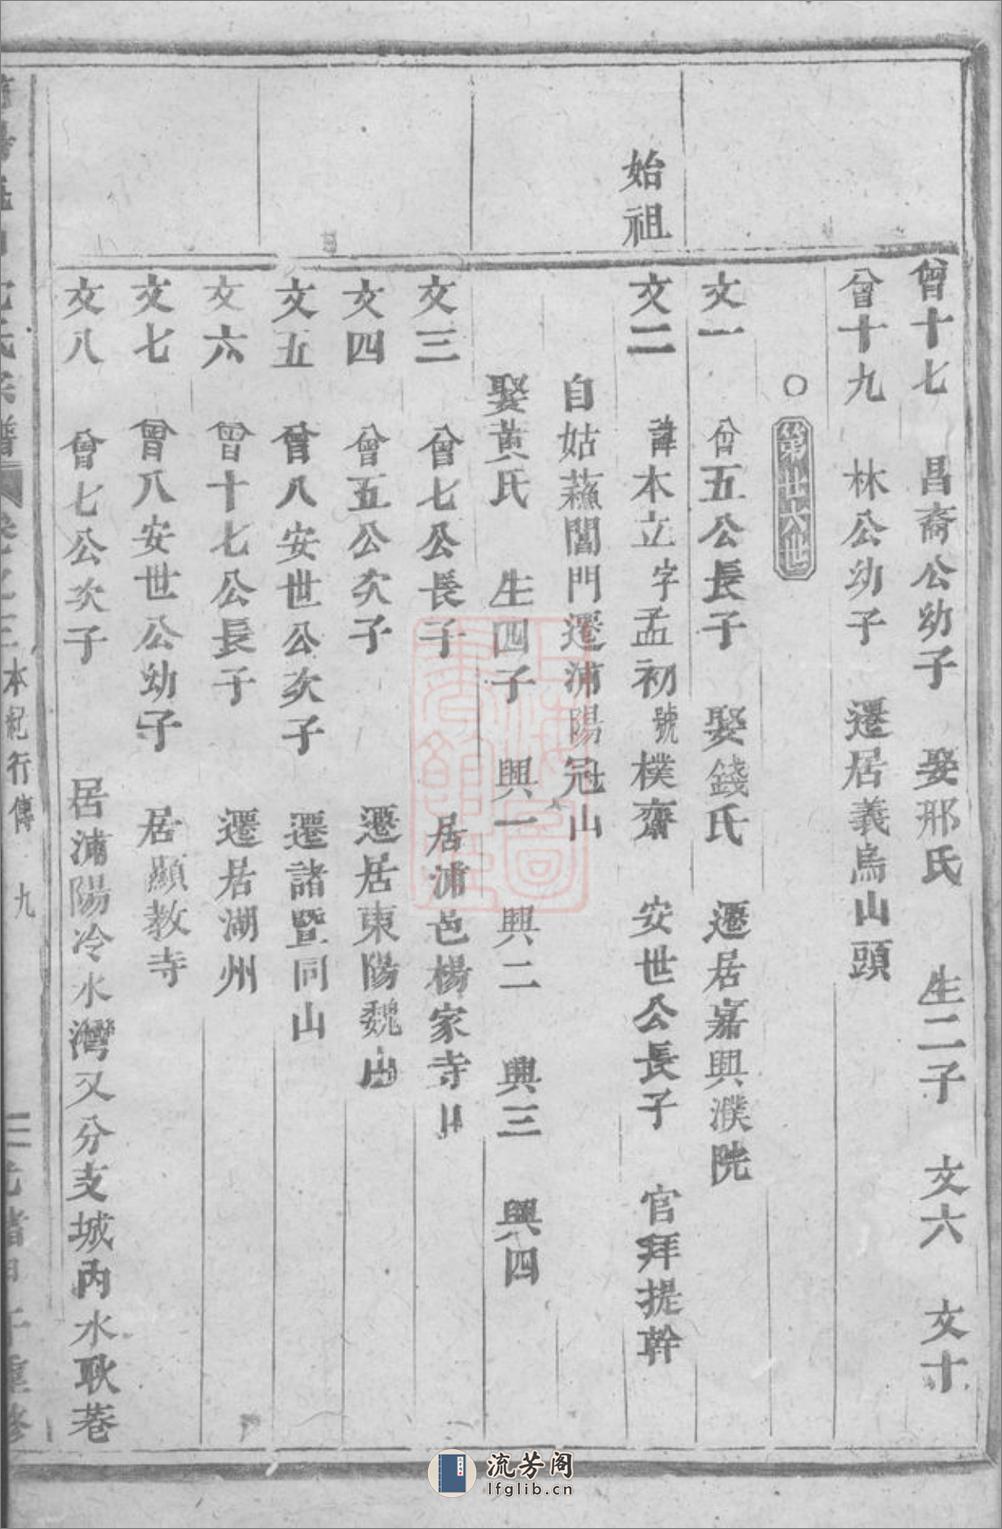 曾十七 昌裔公幼子 娶邢氏 生二子 文六 文十
曾十九 林公幼子 遷居義烏山頭
○ 第廿六世
文一 曾五公長子 娶錢氏 遷居嘉興濮院
始祖
文二 諱本立字孟初號樸齋 安世公長子 官拜提幹
自姑蘇閶門遷浦陽冠山
娶黄氏 生四子 興一 興二 興三 興四
文三 曾七公長子 居浦邑楊家寺口
文四 曾五公次子 遷居東陽魏山
文五 曾八安世公次子 遷諸暨同山
文六 曾十七公長子 遷居湖州
文七 曾八安世公幼子 居顯教寺
文八 曾七公次子 居浦陽冷水灣又分支城内水耿巷
氏宗譜 卷之三 本紀行傳 九 重修
流芳阁
lfglib.cn